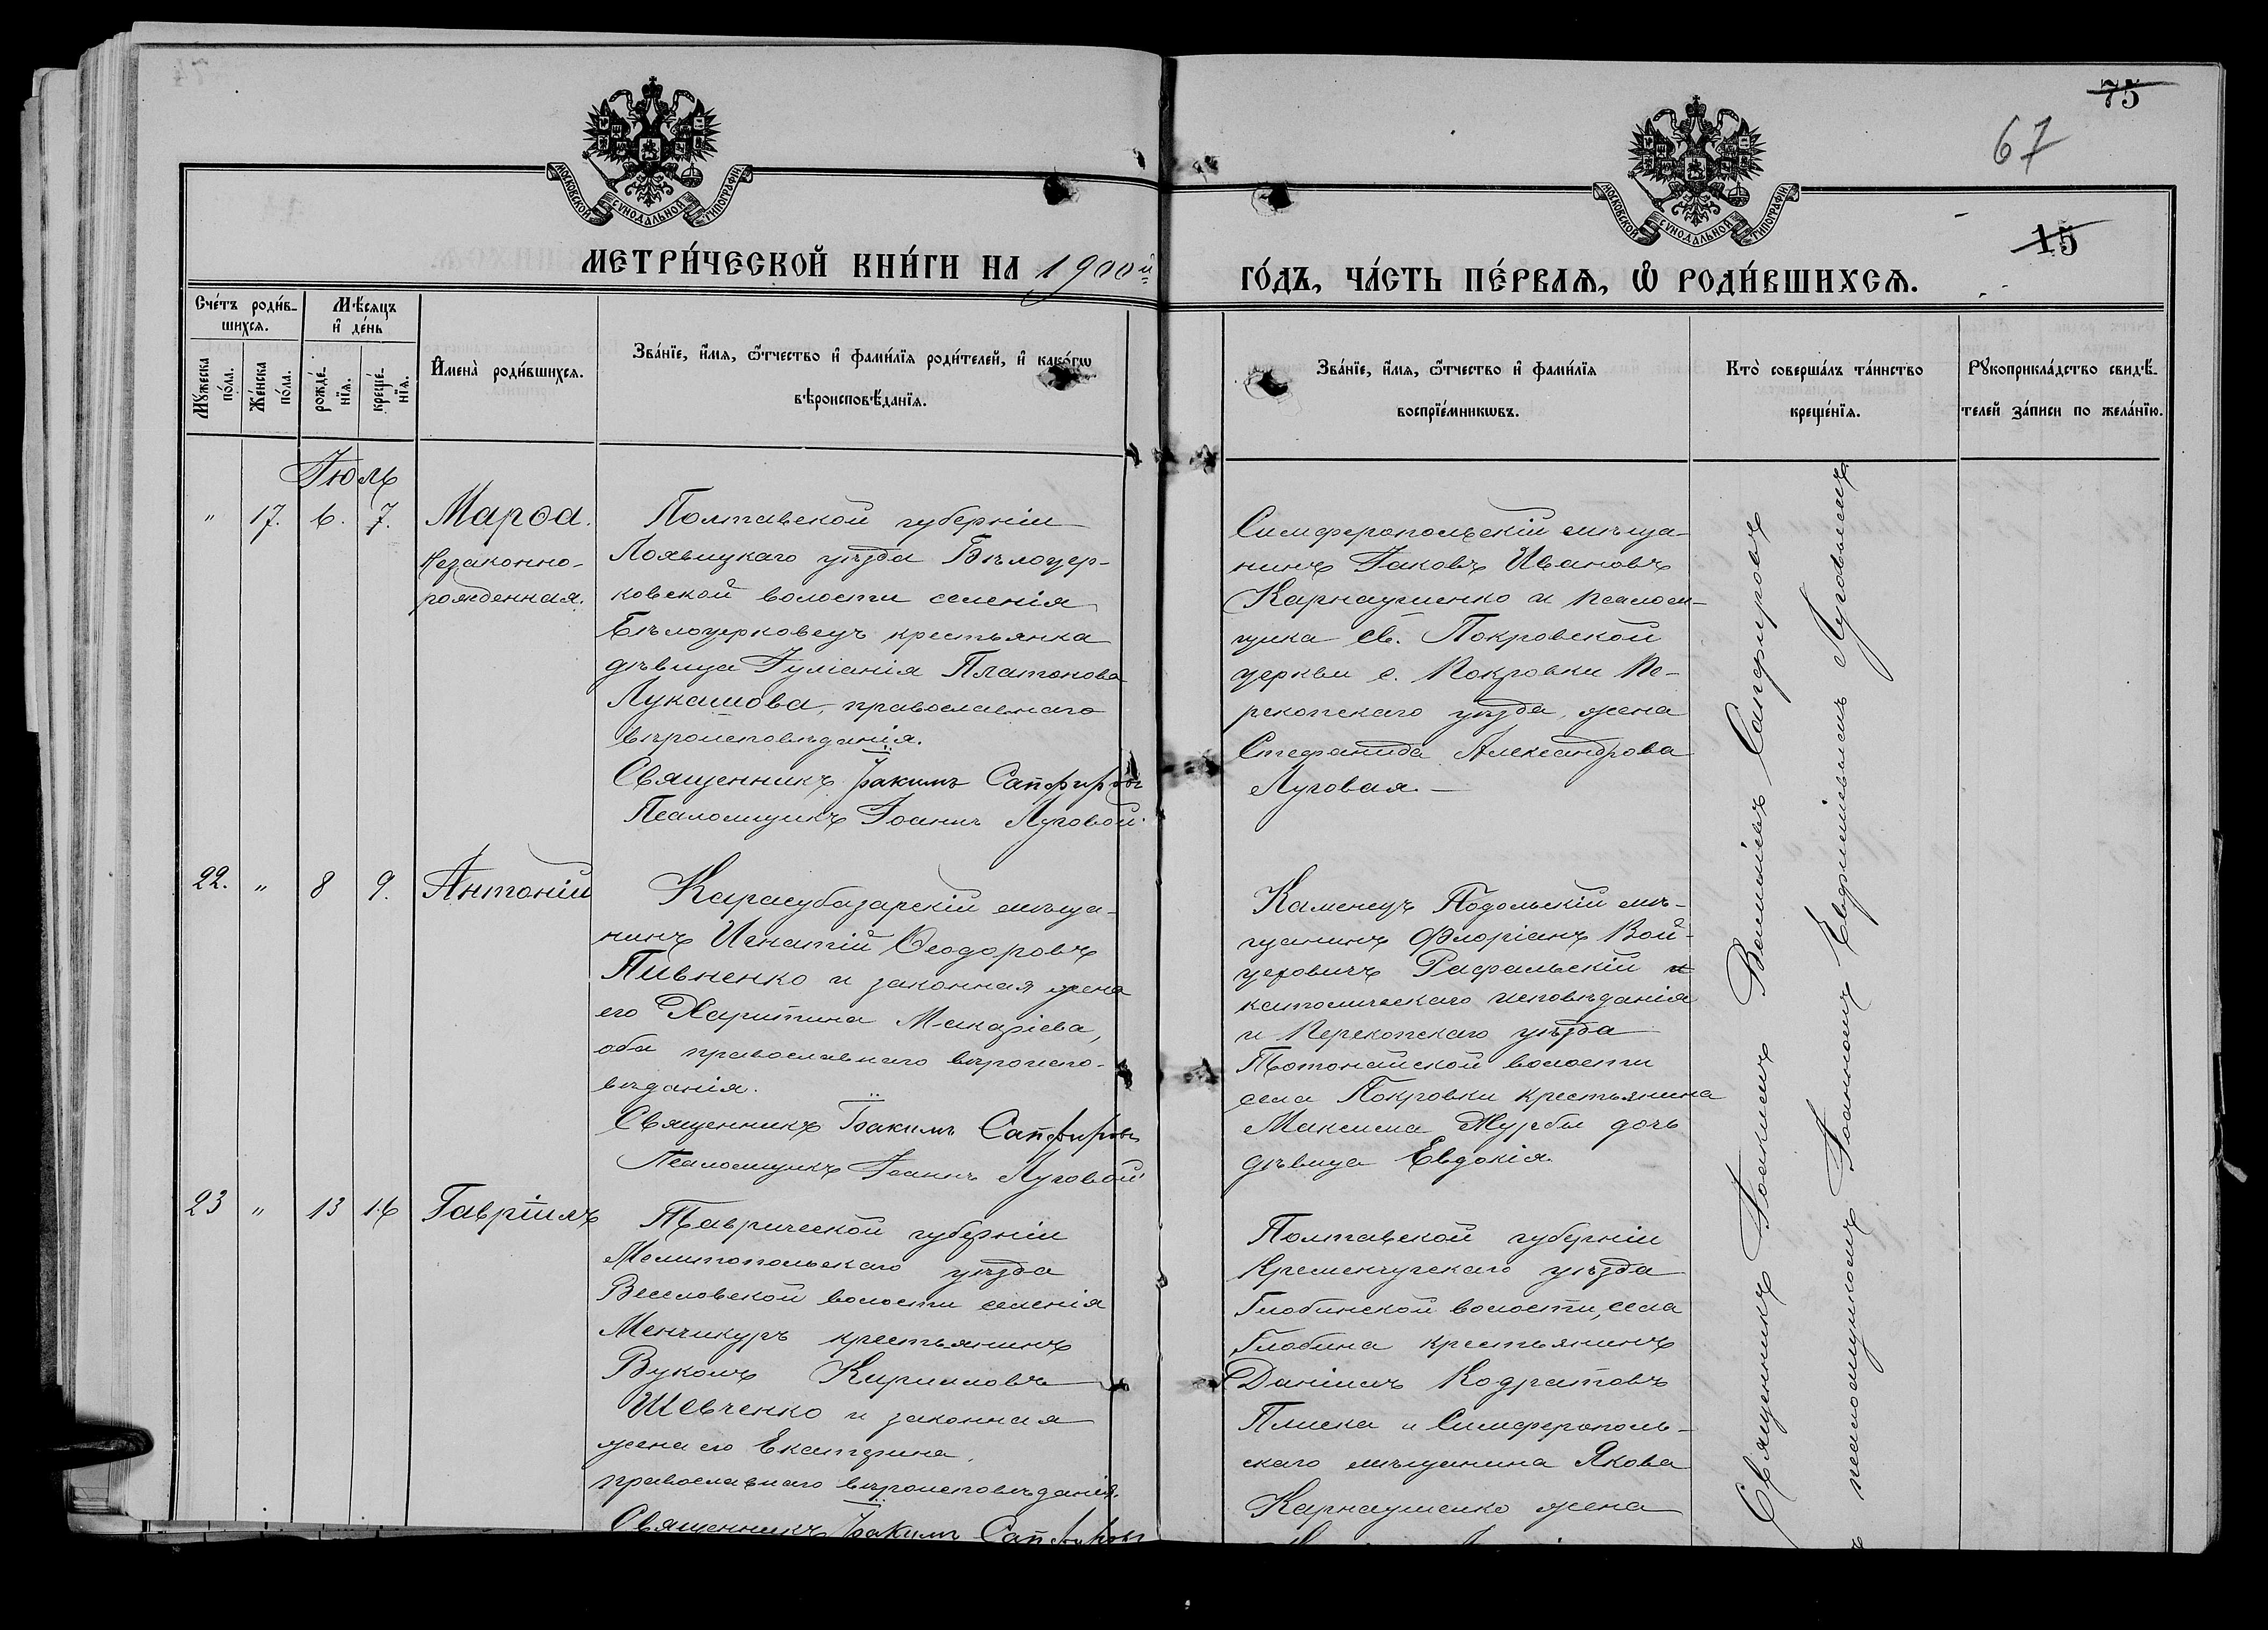 75
67
15
МОСКОВСКОЙ СУНОДАЛЬНОЙ ТИПОГРАФІИ
МОСКОВСКОЙ СУНОДАЛЬНОЙ ТИПОГРАФІИ
МЕТРИ́ЧЕСКОЙ КНИ́ГИ НА 1900й
ГО́ДЪ, ЧА́СТЬ ПЕ́РВАѦ, Ѡ РОДИ́ВШИХСѦ.
Сче́тъ роди́в-
шихсѧ.
Мꙋжеска
по́ла.
Же́нска
по́ла.
Мѣ́сѧцъ
и де́нь
рожде́-
нїѧ.
креще́-
нїѧ.
Имена̀ роди́вшихсѧ.
Зва́нїе, и́мѧ, ѻ҆́тчество и фами́лїѧ роди́телей, и како́гѡ
вѣроисповѣ́данїѧ.
Зва́нїе, и́мѧ, ѻ҆́тчество и фами́лїѧ
воспрїе́мникѡвъ.
Кто̀ соверша́лъ та́инство
креще́нїѧ.
Рꙋкоприкла́дство свидѣ́-
телей за́писи по жела́нїю.
Іюль
" 17. 6. 7. Марѳа.
Незаконно-
рожденная.
Полтавской губерніи
Лохвицкаго уѣзда Бѣлоцер-
ковской волости селенія
Бѣлоцерковецъ крестьянка
дѣвица Іуліанія Платонова
Лукашова, православнаго
вѣроисповѣданія.
Священникъ Іоакимъ Сапфировъ
Псаломщикъ Іоаннъ Луговой.
Симферопольскій мѣща-
нинъ Іаковъ Ивановъ
Карнаушенко и псалом-
щика св. Покровской
церкви с. Покровки Пе-
рекопскаго уѣзда, жена
Стефанида Александрова
Луговая. —
22. " 8 9. Антоній
Карасубазарскій мѣща-
нинъ Игнатій Ѳеодоровъ
Пивненко и законная жена
его Харитина Макаріева,
оба православнаго вѣроиспо-
вѣданія.
Священникъ Іоакимъ Сапфировъ
Псаломщикъ Іоаннъ Луговой
Каменецъ Подольскій мѣ-
щанинъ Флоріанъ Вой-
цеховичъ Рафальскій
католическаго исповѣданія
и Перекопскаго уѣзда
Тотонайской волости
села Покровки крестьянина
Максима Журбы дочь
дѣвица Евдокія.
23 " 13 16 Гавріилъ
Таврической губерніи
Мелитопольскаго уѣзда
Веселовской волости селенія
Менчикуръ крестьянинъ
Вуколъ Кирилловъ
Шевченко и законная
жена его Екатерина,
православнаго вѣроисповѣданія.
Священникъ Іоакимъ Сапфировъ
Полтавской губерніи
Кременчугскаго уѣзда
Глобинской волости, села
Глобина крестьянинъ
Даніилъ Кодратовъ
Плиска и Симферополь-
скаго мѣщанина Якова
Карнаушенко жена
Священникъ Іоакимъ Василіевъ Сапфировъ
псаломщикомъ Іоанномъ Евфиміевымъ Луговымъ